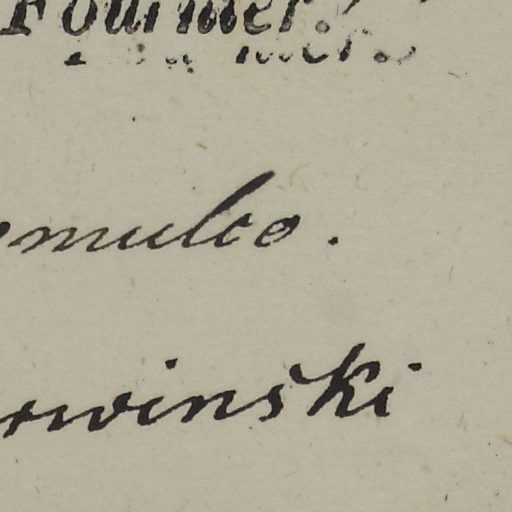 Fournier.
omulco.
rwinski